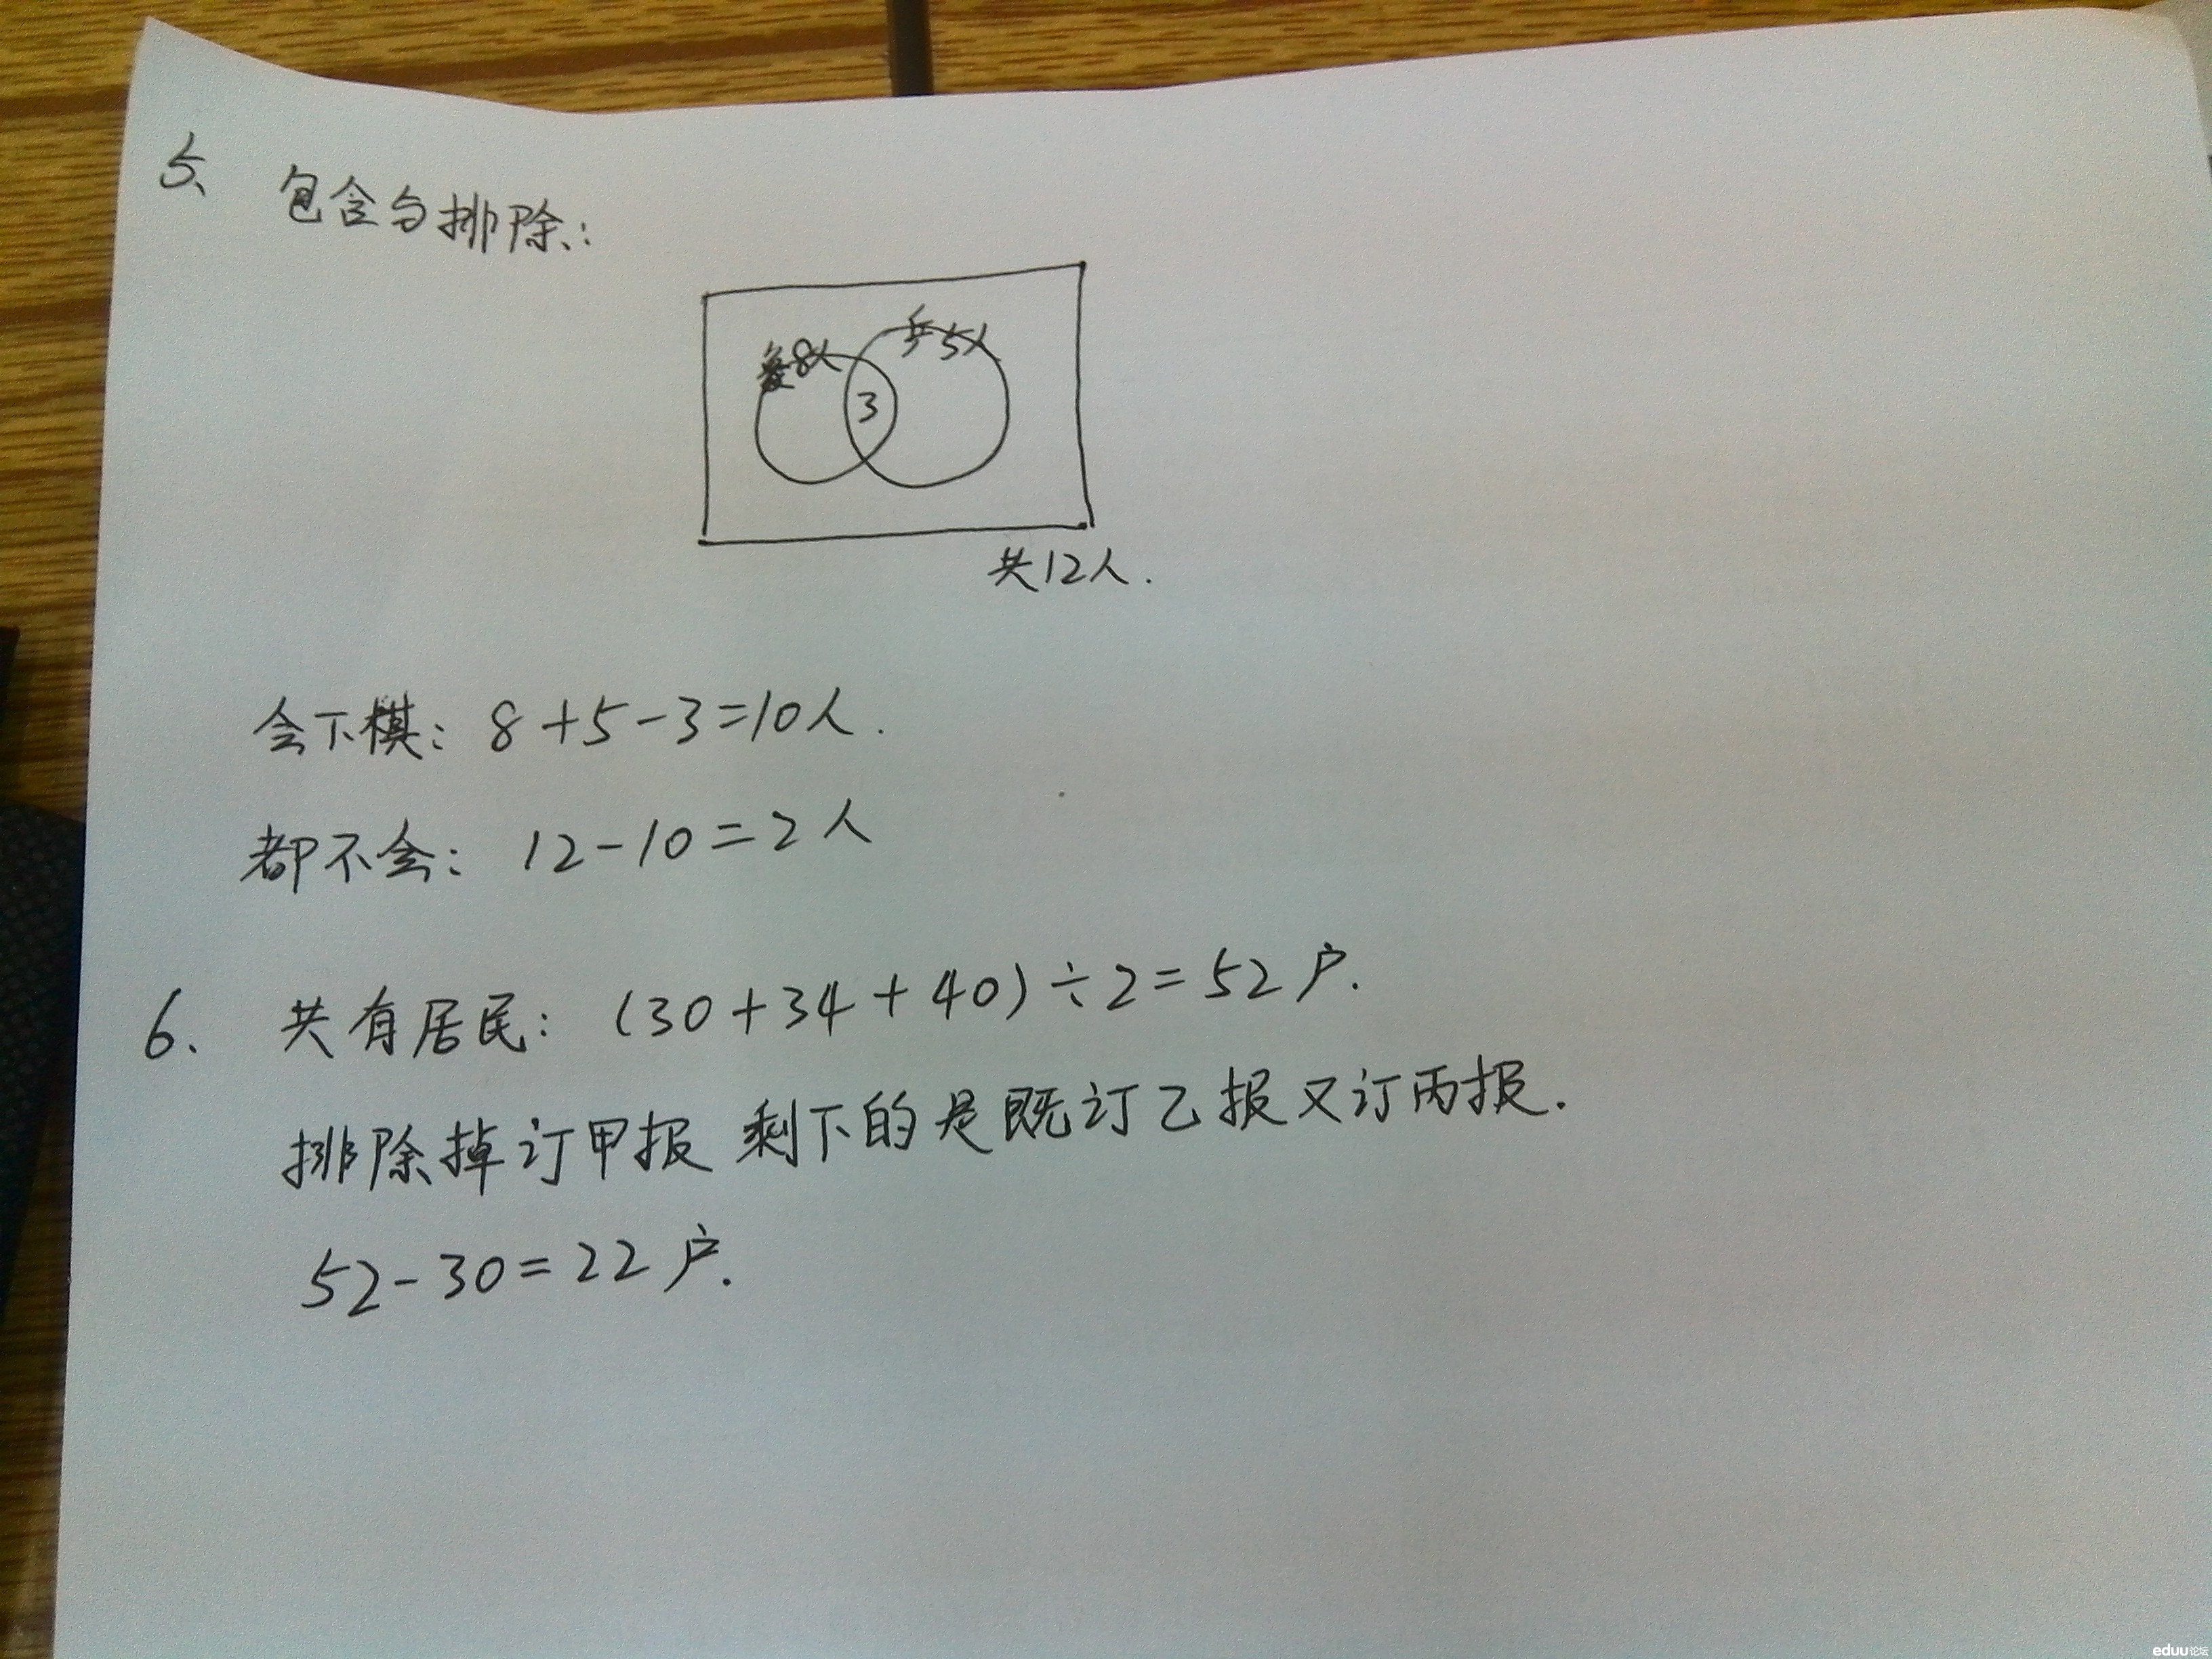 5、 包含与排除:
象8人
乒5人
3
共12人.
会下棋: 8+5-3=10人.
都不会: 12-10=2人
6. 共有居民: (30+34+40)÷2=52户.
排除掉订甲报 剩下的是既订乙报又订丙报.
52-30=22户.
eduu论坛